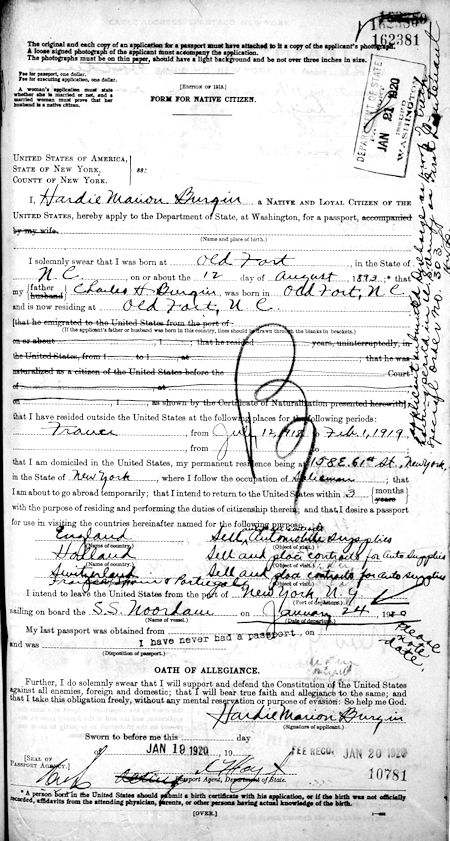 162381
The original and each copy of an application for a passport must have attached to it a copy of the applicant's photograph.
A loose signed photograph of the applicant must accompany the application.
The photographs must be on thin paper, should have a light background and be not over three inches in size.
Fee for passport, one dollar.
Fee for executing application, one dollar.
A woman's application must state whether she is married or not, and a married woman must prove that her husband is a native citizen.
[EDITION OF 1918.]
FORM FOR NATIVE CITIZEN.
DEPARTMENT OF STATE
JAN 21 1920
WASHINGTON
UNITED STATES OF AMERICA,
STATE OF NEW YORK,
COUNTY OF NEW YORK.
ss:
I, Hardie Marion Burgin, a NATIVE AND LOYAL CITIZEN OF THE
UNITED STATES, hereby apply to the Department of State, at Washington, for a passport, accompanied
by my wife,
(Name and place of birth.)
I solemnly swear that I was born at Old Fort, in the State of
N.C., on or about the 12 day of August, 1893; that
my {father husband} Charles H Burgin, was born in Old Fort, N.C.
and is now residing at Old Fort, N.C.
[that he emigrated to the United States from the port of
(If the applicant's father or husband was born in this country, lines should be drawn through the blanks in brackets.)
on or about ; that he resided years, uninterruptedly, in
the United States, from 1 to 1, at ; that he was
naturalized as a citizen of the United States before the Court
of
on , 1 , as shown by the Certificate of Naturalization presented herewith];
that I have resided outside the United States at the following places for the following periods:
France, from July 12, 1918, to Feb. 1, 1919,
, from , to
that I am domiciled in the United States, my permanent residence being at 158 E. 61st St., New York,
in the State of New York, where I follow the occupation of Salesman; that
I am about to go abroad temporarily; that I intend to return to the United States within 3 {months years}
with the purpose of residing and performing the duties of citizenship therein; and that I desire a passport
for use in visiting the countries hereinafter named for the following purpose:
England Sell Automobile Supplies
(Name of country.) (Object of visit.)
Holland Sell and place contracts for Auto Supplies
(Name of country.) (Object of visit.)
Switzerland Sell and place contracts for Auto Supplies
I intend to leave the United States from the port of New York, N.Y.
(Port of departure.)
sailing on board the S.S. Noordam on January 24, 1920
(Name of vessel.) (Date of departure.)
Please note date.
My last passport was obtained from , on
and was I have never had a passport.
(Disposition of passport.)
OATH OF ALLEGIANCE.
Further, I do solemnly swear that I will support and defend the Constitution of the United States
against all enemies, foreign and domestic; that I will bear true faith and allegiance to the same; and
that I take this obligation freely, without any mental reservation or purpose of evasion: So help me God.
Hardie Marion Burgin
(Signature of applicant.)
Sworn to before me this day
of JAN 19 1920, 19
FEE RECD. JAN 20 1920
[SEAL OF PASSPORT AGENCY.]
Passport Agent, Department of State.
10781
* A person born in the United States should submit a birth certificate with his application, or if the birth was not officially
recorded, affidavits from the attending physician, parents, or other persons having actual knowledge of the birth.
[OVER.]